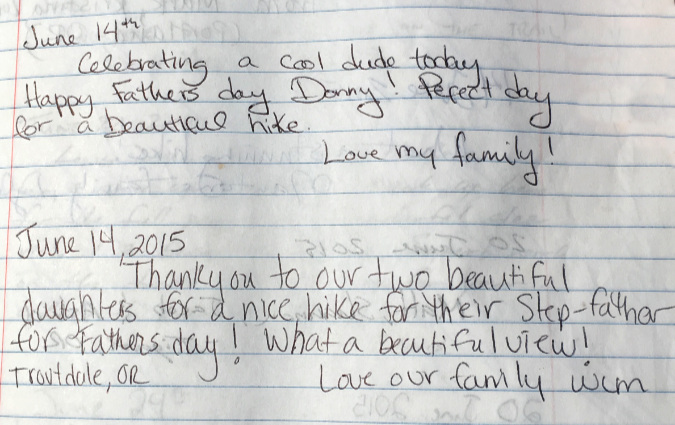 June 14th
Celebrating a cool dude today
Happy Fathers day Donny! Perfect day
for a beautiful hike.
Love my family!
June 14, 2015
Thankyou to our two beautiful
daughters for a nice hike for their Step-father
for Fathers day! What a beautiful view!
Troutdale, OR
Love our family wcm
20 June 2015
20 June 2015